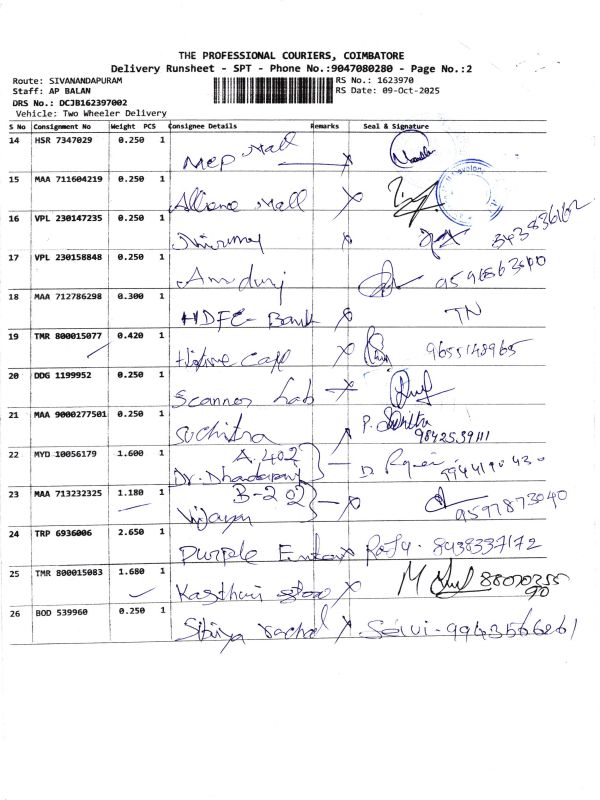 THE PROFESSIONAL COURIERS, COIMBATORE
Delivery Runsheet - SPT - Phone No.:9047080280 - Page No.:2
Route: SIVANANDAPURAM RS No.: 1623970
Staff: AP BALAN RS Date: 09-Oct-2025
DRS No.: DCJB162397002
Vehicle: Two Wheeler Delivery
S No Consignment No Weight PCS Consignee Details Remarks Seal & Signature
14 HSR 7347029 0.250 1 Mall
15 MAA 711604219 0.250 1 Alliance Mall
16 VPL 230147235 0.250 1
17 VPL 230158848 0.250 1
18 MAA 712786298 0.300 1 HDFC - Bank TN
19 TMR 800015077 0.420 1 9655148965
20 DDG 1199952 0.250 1 Scanner Lab
21 MAA 9000277501 0.250 1 Suchitra 9842539111
22 MYD 10056179 1.600 1 A.402
23 MAA 713232325 1.180 1 B-202
Vijayan 9597873040
24 TRP 6936006 2.650 1 Purple 8438337172
25 TMR 800015083 1.680 1 Kasthuri
26 BOD 539960 0.250 1 Selvi - 9943566261